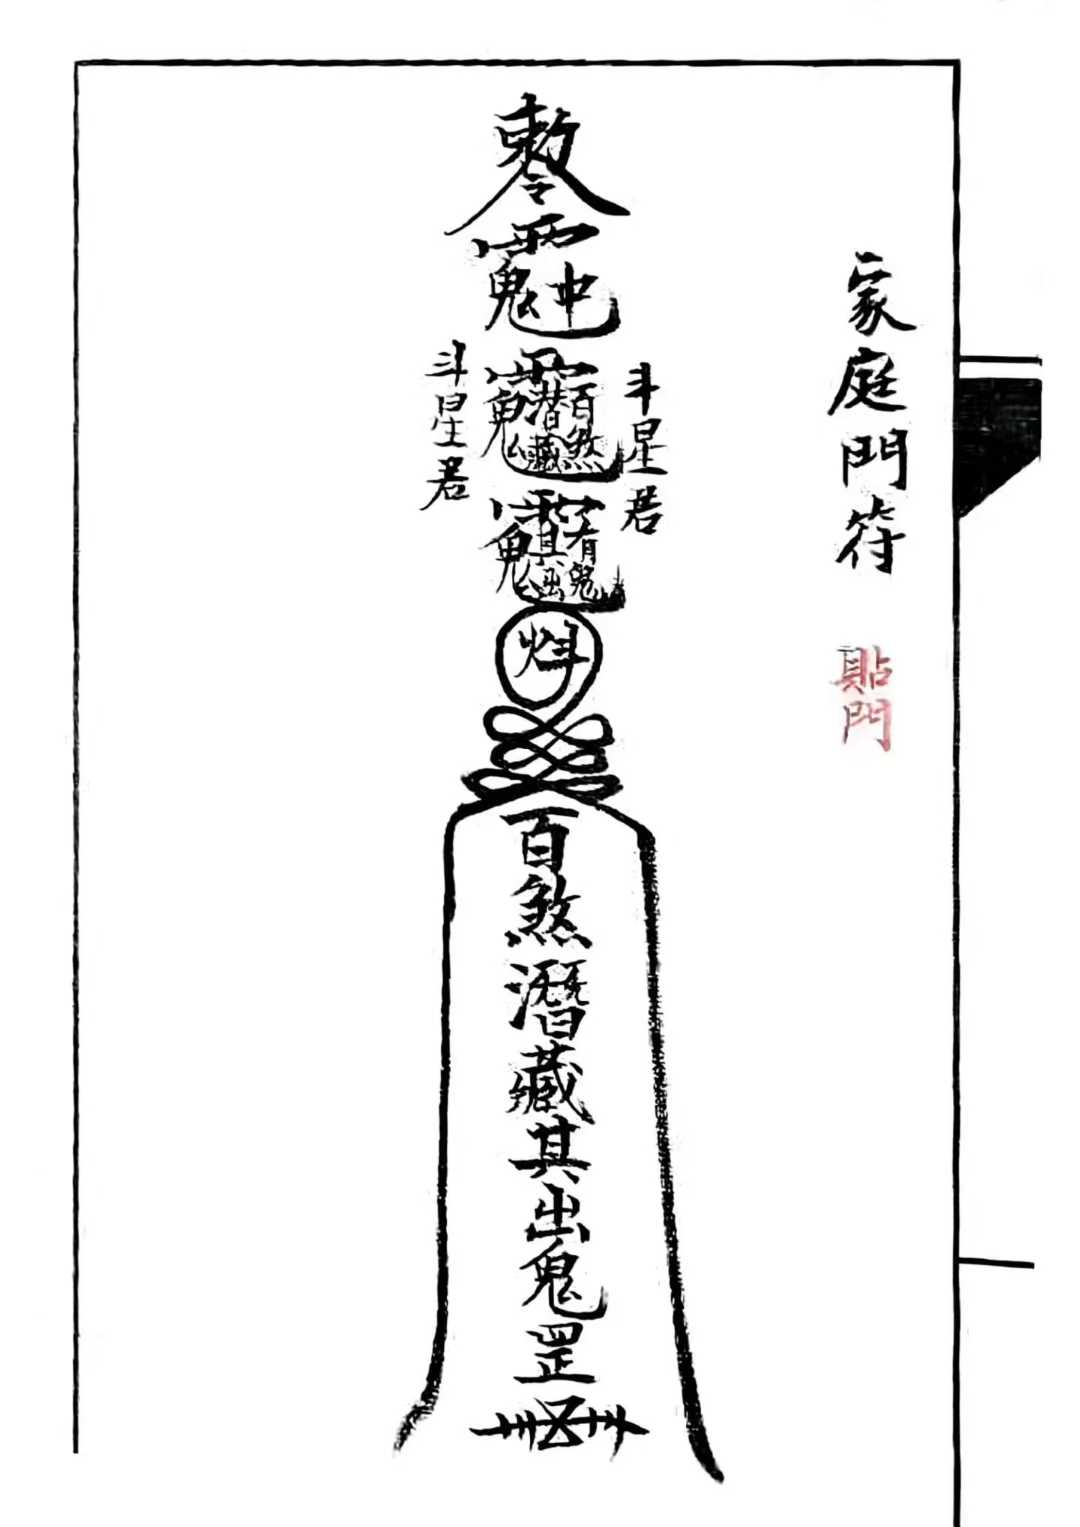 家庭門符
貼門
敕令
斗星君
斗星君
中
百煞
潛藏
有鬼
其出
百煞潛藏其出鬼罡